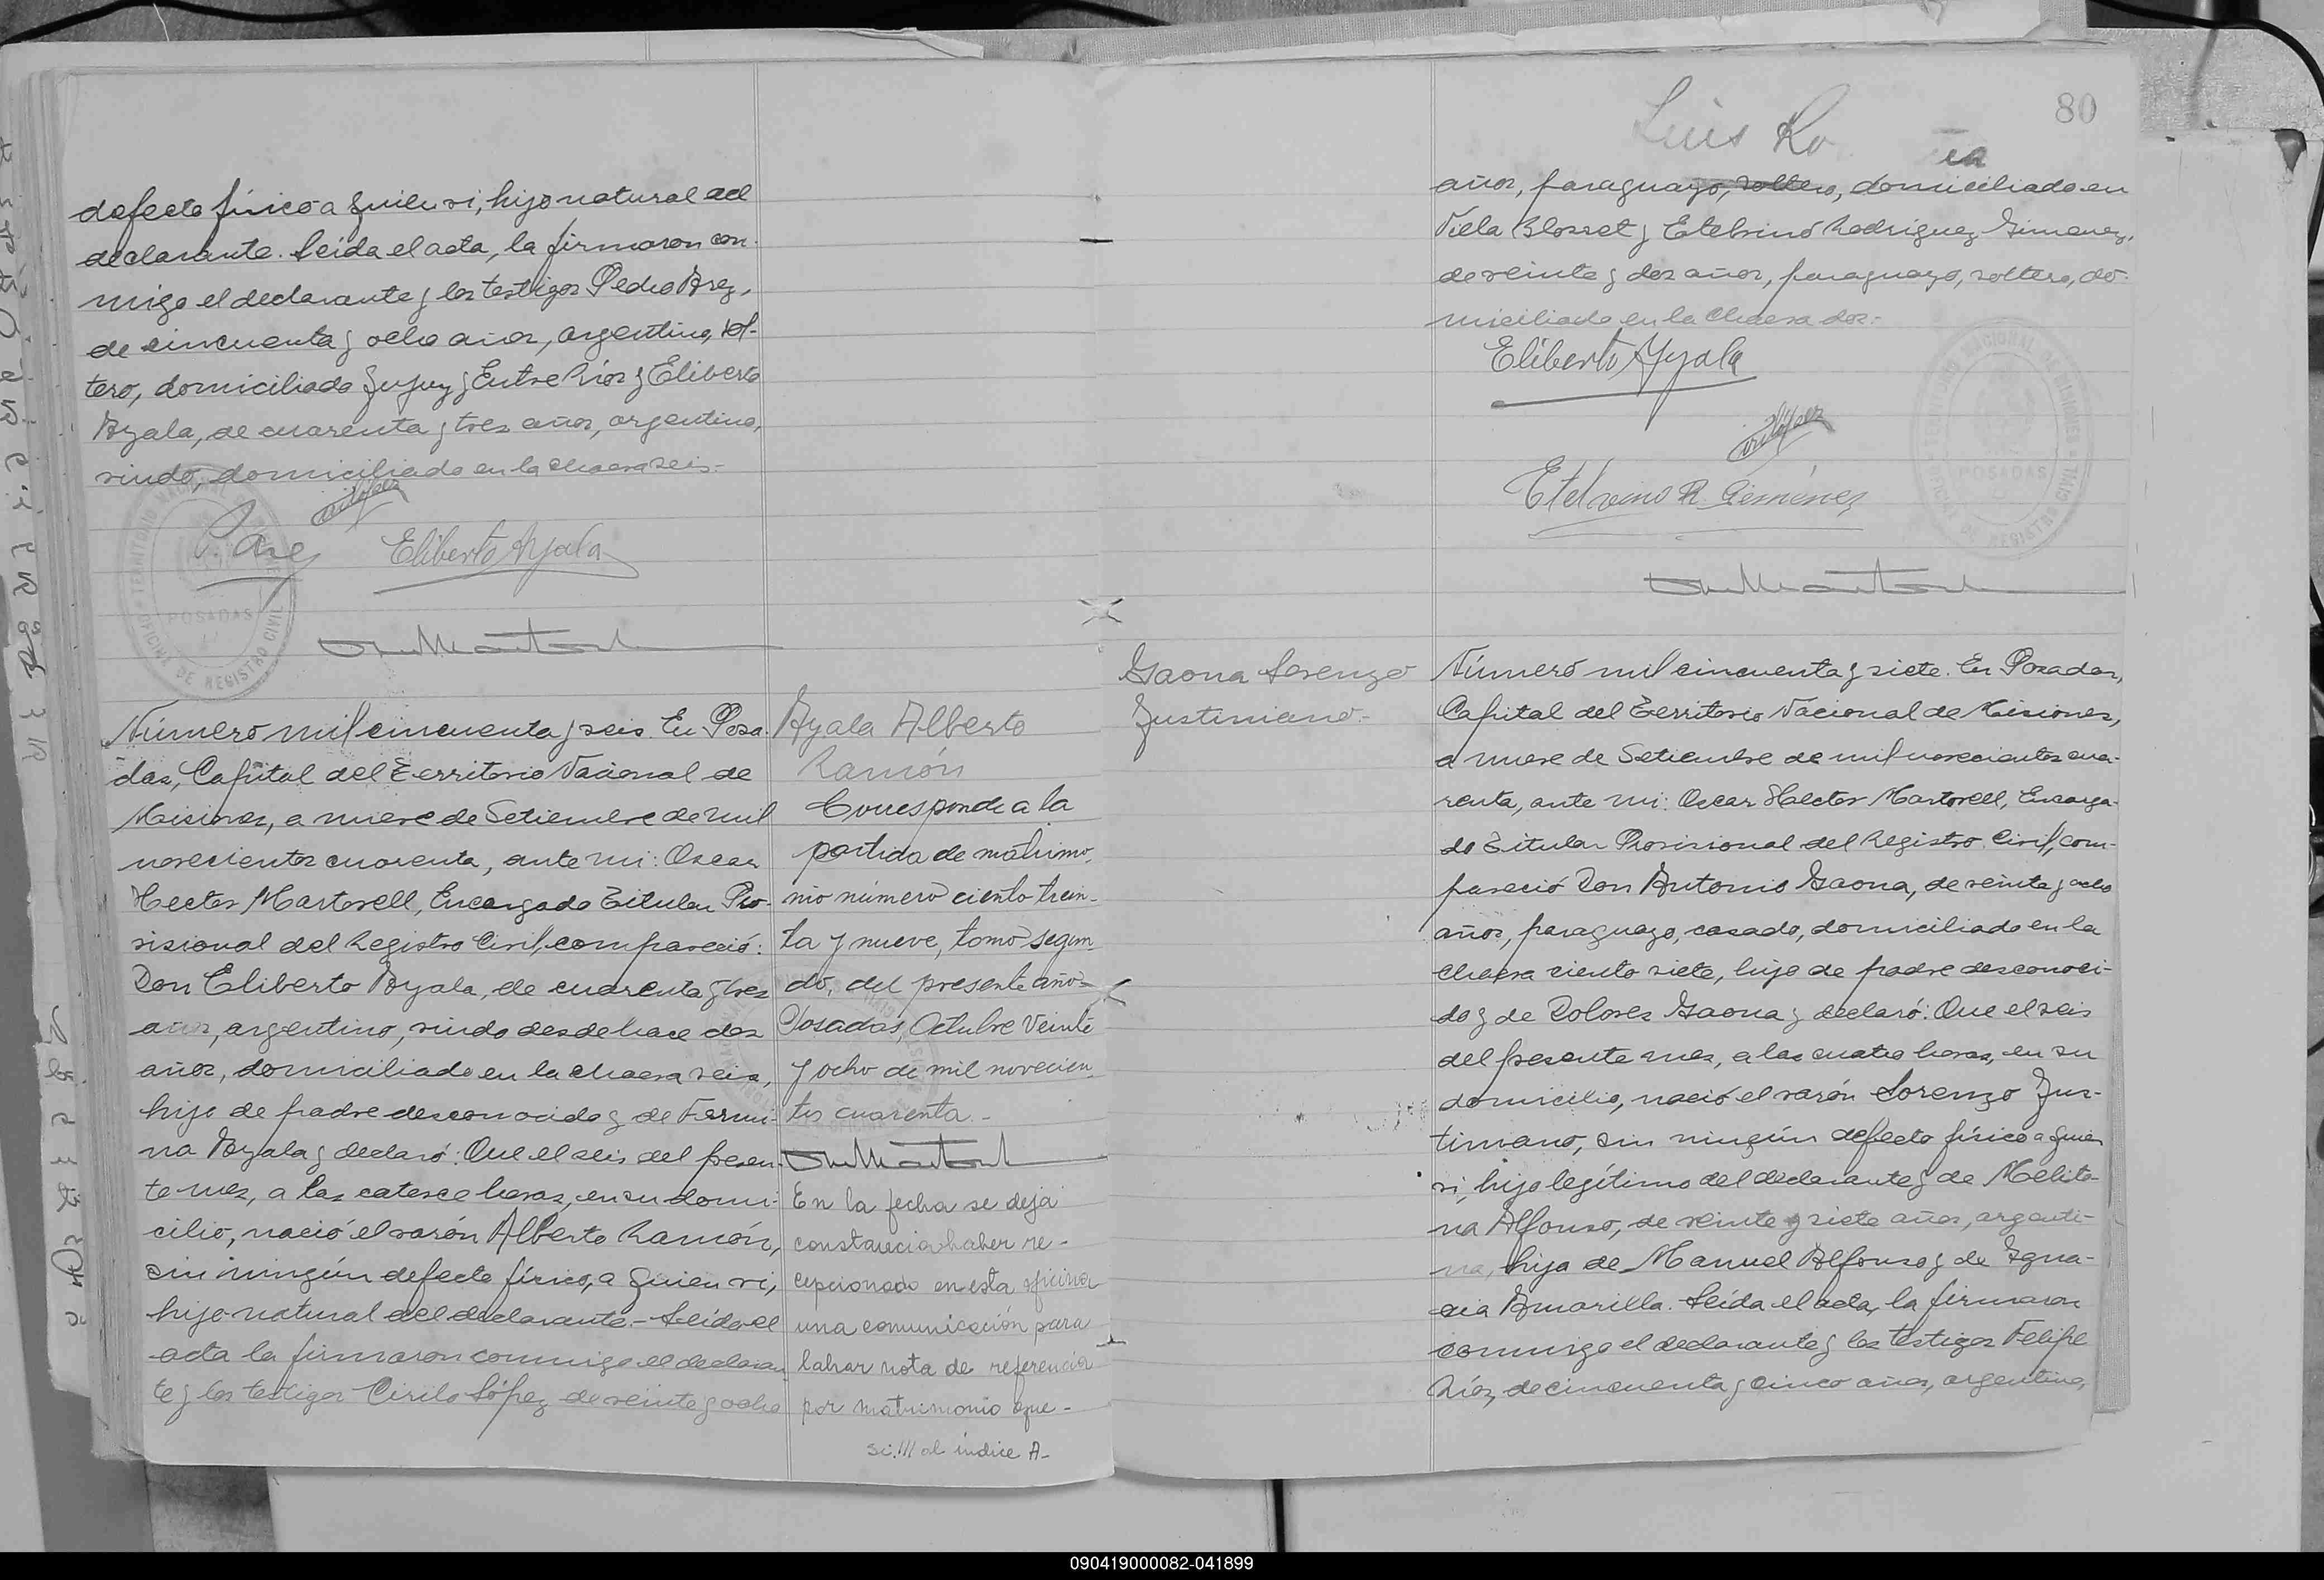 defecto físico a quien vi, hijo natural del
declarante. Leída el acta, la firmaron con-
migo el declarante y los testigos Pedro Arez,
de cincuenta y ocho años, argentino, sol-
tero, domiciliado Jujuy y Entre Ríos y Eliberto
Ayala, de cuarenta y tres años, argentino,
viudo, domiciliado en la chacra seis.-
P. Arez
Eliberto Ayala
POSADAS
OFICINA DE REGISTRO CIVIL
Número mil cincuenta y seis. En Posa-
das, Capital del Territorio Nacional de
Misiones, a nueve de Setiembre de mil
novecientos cuarenta, ante mi: Oscar
Hector Martorell, Encargado Titular Pro-
visional del Registro Civil, compareció:
Don Eliberto Ayala, de cuarenta y tres
años, argentino, viudo desde hace dos
años, domiciliado en la chacra seis,
hijo de padre desconocido y de Fermi-
na Ayala y declaró: Que el seis del presen-
te mes, a las catorce horas, en su domi-
cilio, nació el varón Alberto Ramón,
sin ningún defecto físico, a quien vi,
hijo natural del declarante.- Leída el
acta la firmaron conmigo el declaran-
te y los testigos Cirilo López de veinte y ocho
Ayala Alberto
Ramón
Corresponde a la
partida de matrimo-
nio número ciento trein-
ta y nueve, tomo segun-
do, del presente año-
Posadas, Octubre veinte
y ocho de mil novecien-
tos cuarenta.-
En la fecha se deja
constancia haber re-
cepcionado en esta oficina
una comunicación para
labrar nota de referencia
por matrimonio que-
al índice A-
80
Luis Ro
años, paraguayo, soltero, domiciliado en
Villa Blosset y Etelvino Rodriguez Gimenez,
de veinte y dos años, paraguayo, soltero, do-
miciliado en la chacra dos.-
Eliberto Ayala
Etelvino R. Giménez
POSADAS
Gaona Lorenzo
Justiniano.-
Número mil cincuenta y siete. En Posadas,
Capital del Territorio Nacional de Misiones,
a nueve de Setiembre de mil novecientos cua-
renta, ante mi: Oscar Hector Martorell, Encarga-
do Titular Provisional del Registro Civil, com-
pareció Don Antonio Gaona, de veinte y ocho
años, paraguayo, casado, domiciliado en la
chacra ciento siete, hijo de padre desconoci-
do y de Dolores Gaona y declaró: Que el seis
del presente mes, a las cuatro horas, en su
domicilio, nació el varón Lorenzo Jus-
tiniano, sin ningún defecto físico a quien
vi, hijo legítimo del declarante y de Melito-
na Alfonso, de veinte y siete años, argenti-
na, hija de Manuel Alfonso y de Igna-
cia Amarilla. Leída el acta, la firmaron
conmigo el declarante y los testigos Felipe
Ríos, de cincuenta y cinco años, argentino,
090419000082-041899